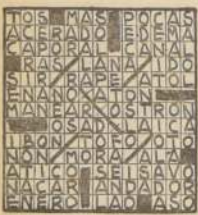 TOS MAS POCAS
ACERADO EDEMA
CAPORAL CANAL
RAS LANA IDO
SIR RAPE ATOL
ENANO ATON
MANEAR OS RON
OSADIA ICA
IBON TOFO OTO
NON MORA ALA
ATICO SEISAVO
NACAR ANDADOR
ENERO LAO ASO